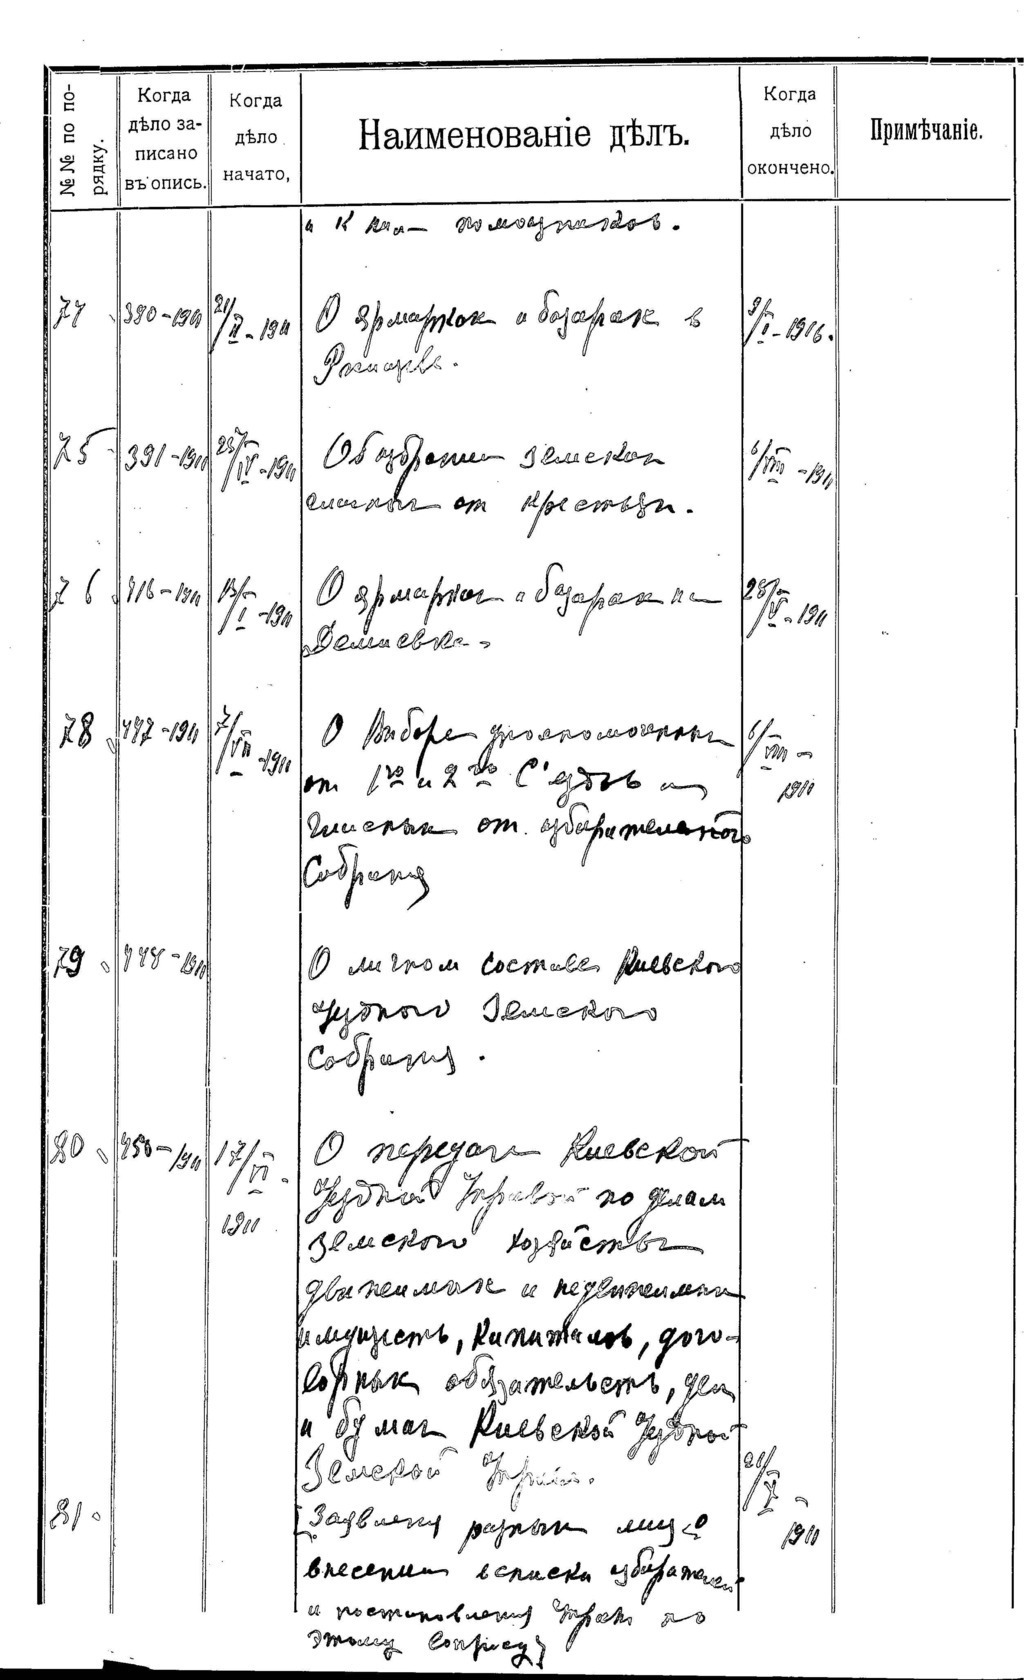 №№ по по-
рядку.
Когда
дѣло за-
писано
въ опись.
Когда
дѣло
начато,
Наименованіе дѣлъ.
Когда
дѣло
окончено.
Примѣчаніе.
помощников.
74 390-1911 21/II-1911 О ярмарках и базарах в 9/I-1916.
Ржищеве.
75 391-1911 /IV-1911 Об избрании земских 6/VIII-1911
гласных от крестьян.
76 416-1911 13/I-1911 О ярмарках и базарах на 28/V-1911
Демиевке
78 447-1911 7/VII-1911 О выборе уполномоченных 6/VIII-
от 1го и 2го С'ездов и 1911
гласных от избирательного
Собрания
79 448-1911 О личном составе Киевского
Уездного Земского
Собрания.
80 450-1911 17/VI- О передаче Киевской
1911 Уездной Управой по делам
Земского хозяйства
движимых и недвижимых
имуществ, капиталов, дого-
ворных обязательств, дел
и бумаг Киевской Уездной
Земской Управе. 21/V-
81 Заявления разных лиц о 1911
внесении в списки избирателей
и постановления Управы по
этому вопросу